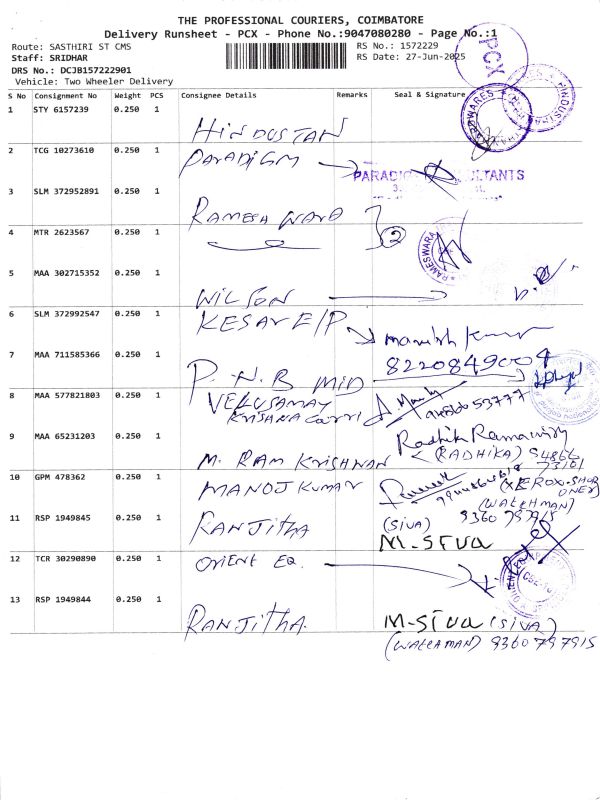 THE PROFESSIONAL COURIERS, COIMBATORE
Delivery Runsheet - PCX - Phone No.:9047080280 - Page No.:1
Route: SASTHIRI ST CMS
RS No.: 1572229
Staff: SRIDHAR
RS Date: 27-Jun-2025
DRS No.: DCJB157222901
Vehicle: Two Wheeler Delivery
PCX
S No Consignment No Weight PCS Consignee Details Remarks Seal & Signature
1 STY 6157239 0.250 1 HINDUSTAN
2 TCG 10273610 0.250 1 PARADIGM
3 SLM 372952891 0.250 1 RAMESH WARA 2
4 MTR 2623567 0.250 1
5 MAA 302715352 0.250 1 WILSON
6 SLM 372992547 0.250 1 KESAV E/P Manish Kumar
8220849004
7 MAA 711585366 0.250 1 P.N.B MID
8 MAA 577821803 0.250 1 VELUSAMAY
KRISHNA
9 MAA 65231203 0.250 1 M. RAM KRISHNAN
(RADHIKA) 94866
73101
10 GPM 478362 0.250 1 MANOJ KUMAR
(XEROX-SHOP
ONER)
(WATCHMAN)
11 RSP 1949845 0.250 1 RANJITHA (SIVA) 9360797915
M-SIVA
12 TCR 30290890 0.250 1 ORIENT EQ.
13 RSP 1949844 0.250 1 RANJITHA M-SIVA (SIVA)
(WATCAMAN) 9360797915